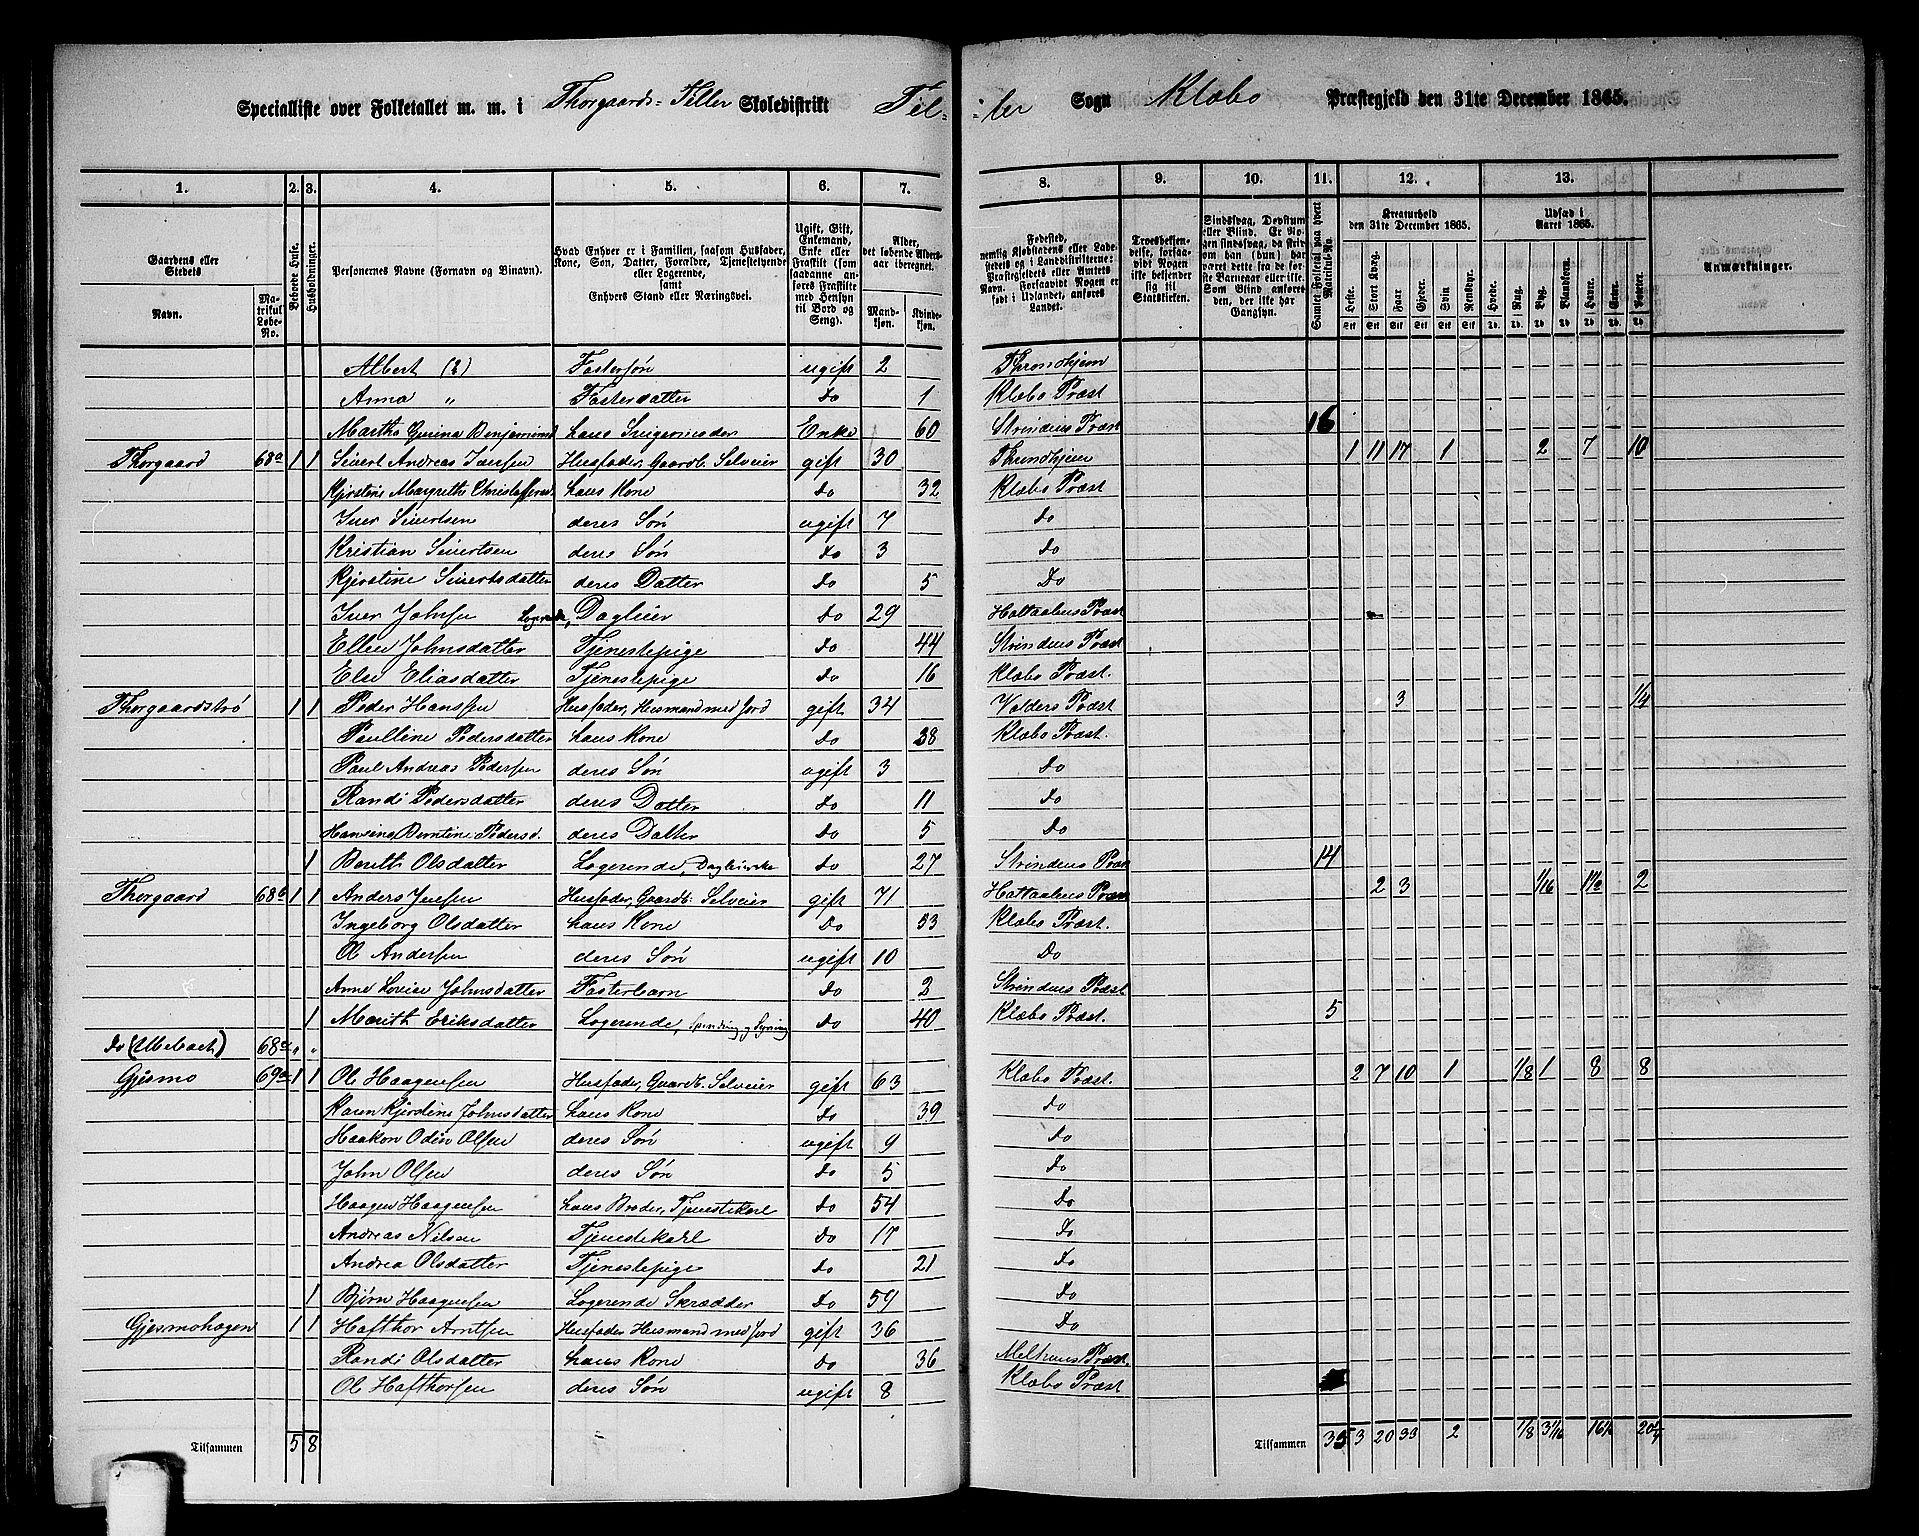 Specialliste over Folketallet m. m. i Thorgaards-Tiller Skoledistrikt Til-ler Sogn Klæbo Præstegjeld den 31te December 1865.
1. 2. 3. 4. 5. 6. 7. 8. 9. 10. 11. 12. 13.
Gaardens eller Stedets Navn. Matrikul Løbe-No. Beboede Huse. Husholdninger. Personernes Navne (Fornavn og Binavn). Hvad Enhver er i Familien, saasom Husfader, Kone, Søn, Datter, Forældre, Tjenestetyende eller Logerende, samt Enhvers Stand eller Næringsvei. Ugift, Gift, Enkemand, Enke eller Fraskilt (som saadanne anføres Fraskilte med Hensyn til Bord og Seng). Alder, det løbende Alders-aar iberegnet. Mand-kjøn. Kvinde-kjøn.
Kreaturhold den 31te December 1865. Udsæd i Aaret 1865. Anmærkninger.
Heste. Stort Kvæg. Faar. Gjeder. Svin. Rensdyr. Hvede. Rug. Byg. Blandkorn. Havre. Erter. Poteter.
Albert (2) Fostersøn ugift 2 Throndhjem
Anna " Fosterdatter do 1 Klæbo Præst
Martha Gurina Benjaminsd hans Svigermoder Enke 60 Strindens Præst 16
Thorgaard 68a 1 1 Sivert Andreas Jensen Husfader, Gaardb. Selveier gift 30 Throndhjem 1 11 17 1 2 7 10
Kjerstine Margrethe Christoffersd. hans Kone do 32 Klæbo Præst
Iver Sivertsen deres Søn ugift 7 do
Kristian Sivertsen deres Søn do 3 do
Kjerstine Sivertsdatter deres Datter do 5 Do
Iver Johnsen Logerende, Dagleier do 29 Holtaalens Præst
Ellen Johnsdatter Tjenestepige do 44 Strindens Præst
Else Eliasdatter Tjenestepige do 16 Klæbo Præst.
Thorgaardstrø 1 1 Peder Hanssen Husfader, Husmand med Jord gift 34 Valders Præst 3 1/4
Pauline Pedersdatter hans Kone do 38 Klæbo Præst.
Paul Andreas Pedersen deres Søn ugift 3 do
Randi Pedersdatter deres Datter do 11 do
Hansina Berntine Pedersd. deres Datter do 5 do
1 Berith Olsdatter Logerende, do 27 Strindens Præst 14
Thorgaard 68b 1 1 Anders Jensen Husfader, Gaardb. Selveier gift 71 Holtaalens Præst 2 3 1/16 1 1/2 2
Ingeborg Olsdatter hans Kone Do 53 Klæbo Præst.
Ol Andersen deres Søn ugift 10 Do
Anne Lovise Johnsdatter Fosterbarn do 2 Strindens Præst
1 Marith Eriksdatter Logerende, Spinding og Syning do 40 Klæbo Præst. 5
do (Ubeboet) 68c " "
Gjesmo 69a 1 1 Ol Haagensen Husfader, Gaardb. Selveier gift 63 Klæbo Præst. 2 7 10 1 1/8 1 8 8
Karen Kjerstine Johnsdatter hans Kone do 39 do
Haakon Odin Olsen deres Søn ugift 9 do
John Olsen deres Søn do 5 do
Haagen Haagensen hans Broder, Tjenestekarl do 54 do
Andreas Nilsen Tjenestekarl do 17 do
Andrea Olsdatter Tjenestepige do 21 do
1 Bjørn Haagensen Logerende Skrædder do 59 do
Gjesmohagen 1 1 Hafthor Arntsen Husfader Husmand med Jord gift 36 do
Randi Olsdatter hans Kone do 36 Melhuus Præst.
Ol Hafthorsen deres Søn ugift 8 Klæbo Præst
Tilsammen 5 8 Tilsammen 35 3 20 33 2 1/8 3 1/16 16 1/2 20 1/4